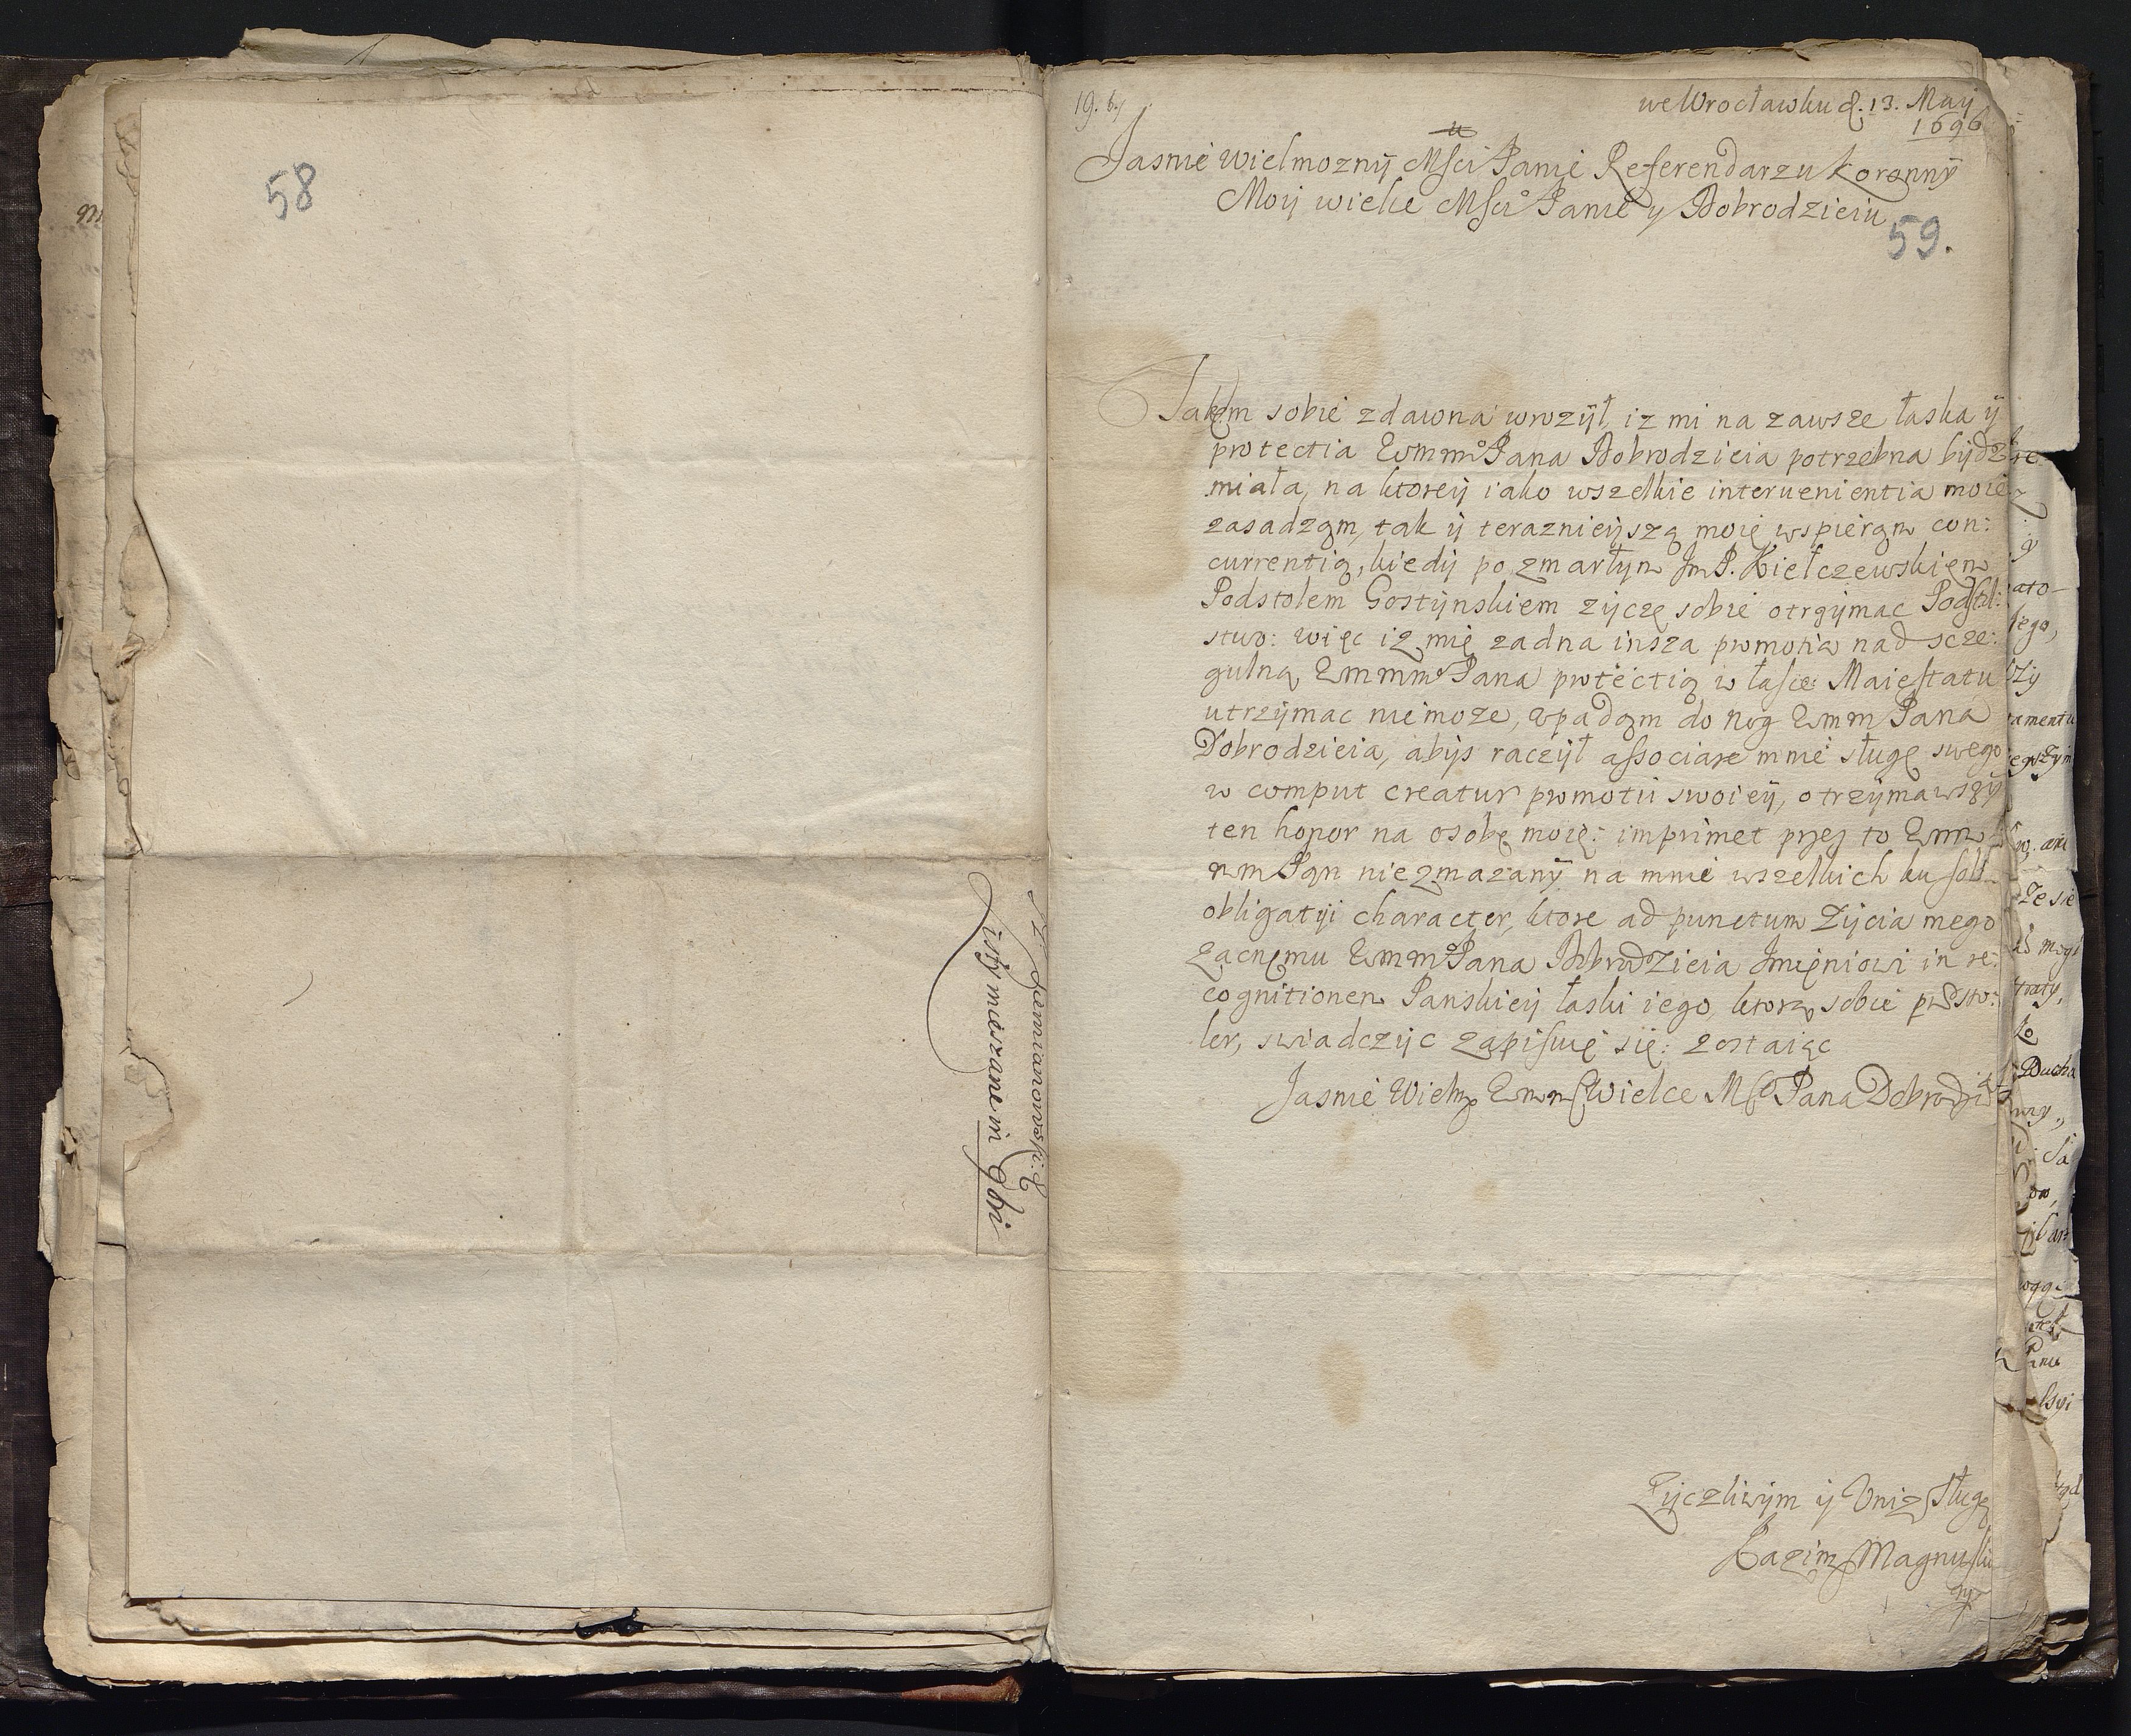 58
Listy mieszane in Gbri
19. b.
we Wrocławku d. 13. Maij
1696
Jasnie wielmoznÿ Msci Panie Referendarzu koronnÿ
Moij wielce Msci Panie y Dobrodzieiu
59.
Jakom sobie zdawna wrozÿł, iz mi na zawsze łaska ÿ
protectia Wmm Pana Dobrodzieia potrzebna bÿdz
miała, na ktoreÿ iako wszelkie interuenientia moie
zasadzam, tak ÿ teraznieÿszą moię wspieram con:
currentią, kiedÿ po zmarłym Jm P. Kiełczewskiem
Podstolem Gostÿnskiem zÿczę sobie otrzÿmac Podstol:
stwo: więc iz mię zadna insza promotia nad scze:
gulną Wmmm Pana protectią w łasce Maiestatu
utrzÿmac niemoze, upadam do nog Wmm Pana
Dobrodzieia, abÿs raczÿł associare mnie sługę swego
w comput creatur promotii swoieÿ, otrzÿmawszÿ
ten honor na osobę moię: imprimet przez to Wm
mm Pan niezmazanÿ na mnie wszelkich ku sobie
obligatÿi character, ktore ad punctum Zÿcia mego
zacnemu Wmm Pana Dobrodzieia Imieniowi in re:
cognitionem Panskieÿ łaski iego, ktorą sobie
swiadczÿc zapisuię się: zostaiąc
Jasnie Wielm Wmm Wielce Msci Pana Dobrodzieia
Zÿczliwÿm ÿ Uniz Sługą
Kazim Magnuski
mp